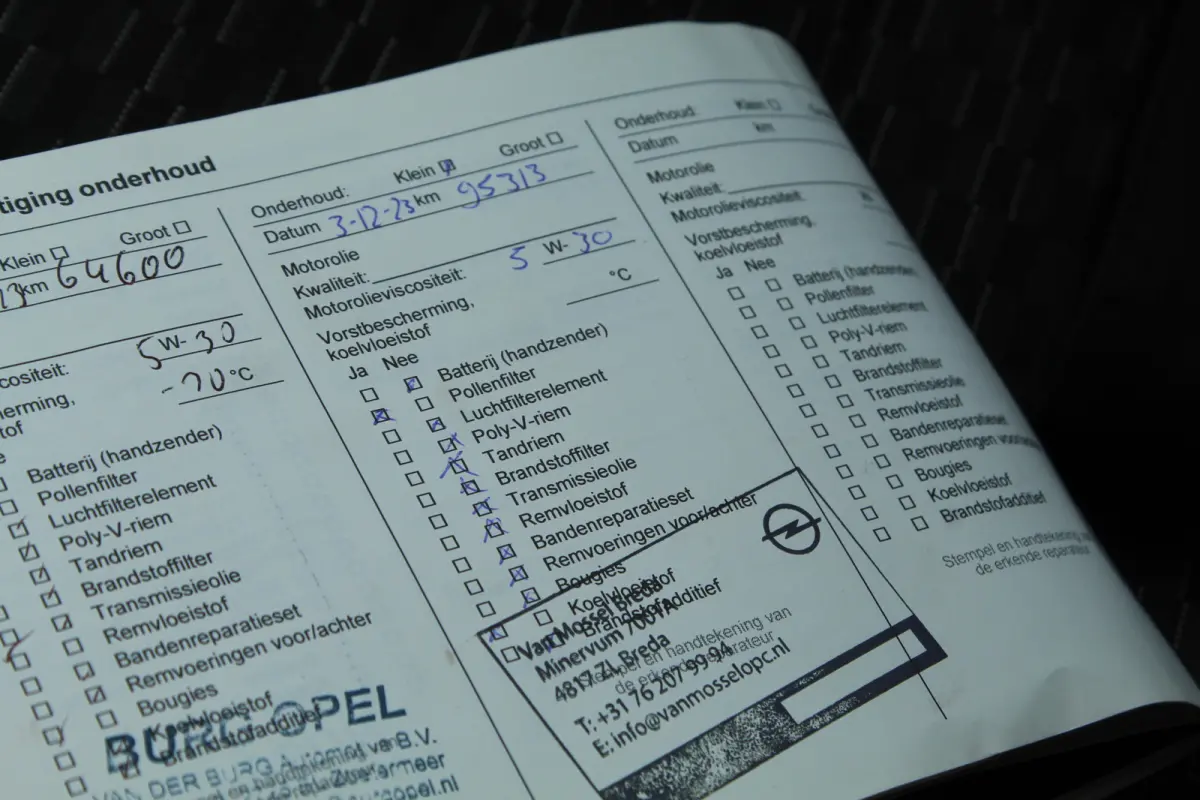 tiging onderhoud
Klein Groot
km 64600
5 W- 30
cositeit:
-70 °C
herming,
tof
Batterij (handzender)
Pollenfilter
Luchtfilterelement
Poly-V-riem
Tandriem
Brandstoffilter
Transmissieolie
Remvloeistof
Bandenreparatieset
Remvoeringen voor/achter
Bougies
Koelvloeistof
Brandstofadditief
BURG OPEL
Zoetermeer
Onderhoud: Klein Groot
Datum 3-12-23 km 95313
Motorolie
Kwaliteit:
Motorolieviscositeit: 5 W- 30
Vorstbescherming, °C
koelvloeistof
Ja Nee
Batterij (handzender)
Pollenfilter
Luchtfilterelement
Poly-V-riem
Tandriem
Brandstoffilter
Transmissieolie
Remvloeistof
Bandenreparatieset
Remvoeringen voor/achter
Bougies
Koelvloeistof
Brandstofadditief
Stempel en handtekening van
de erkende reparateur
Van Mossel Breda
Minervum 7001A
4817 ZL Breda
T: +31 76 207 99 94
E: info@vanmosselopc.nl
Onderhoud: Klein
Datum km
Motorolie
Kwaliteit:
Motorolieviscositeit:
Vorstbescherming,
koelvloeistof
Ja Nee
Batterij (handzender)
Pollenfilter
Luchtfilterelement
Poly-V-riem
Tandriem
Brandstoffilter
Transmissieolie
Remvloeistof
Bandenreparatieset
Remvoeringen
Bougies
Koelvloeistof
Brandstofadditief
Stempel en handtekening
de erkende reparateur